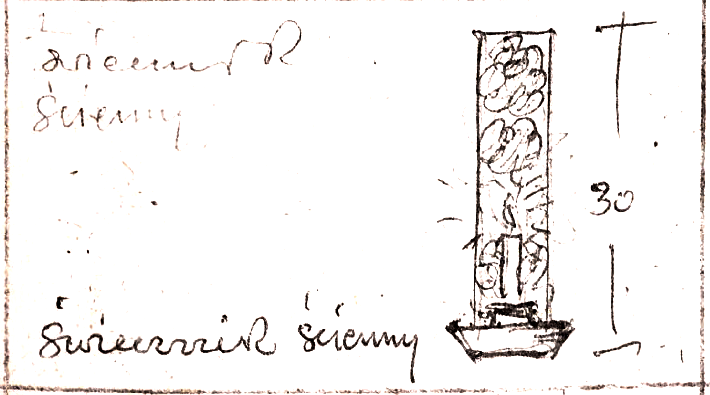 świecznik
ścienny
30
świecznik ścienny